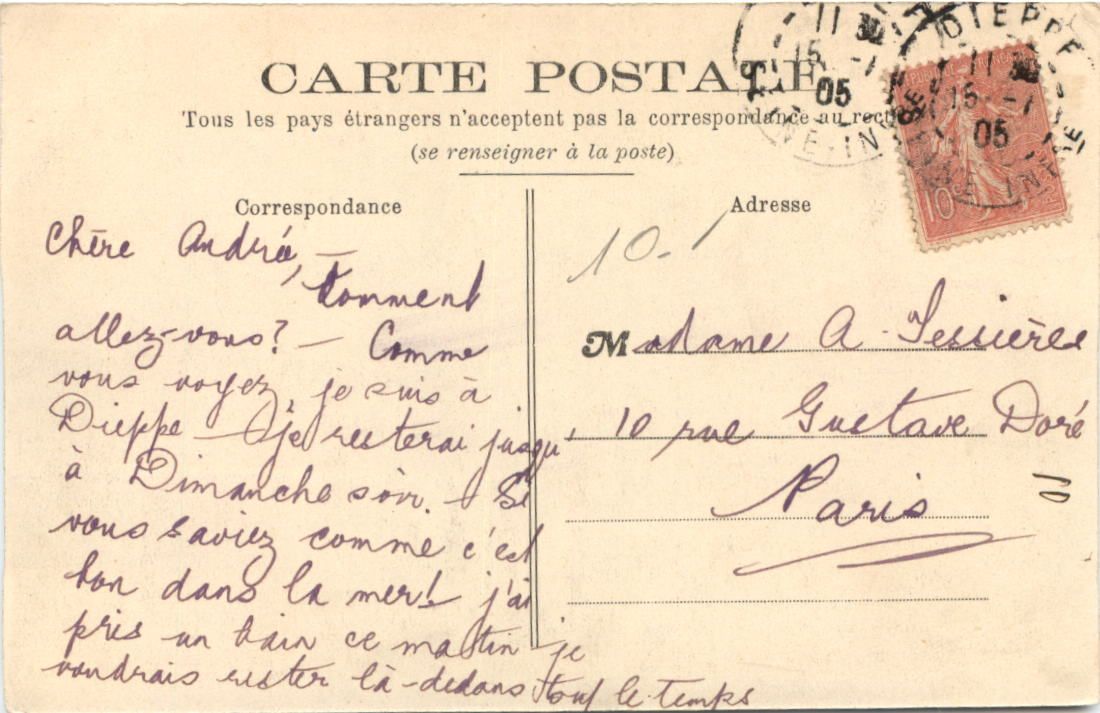 CARTE POSTALE
Tous les pays étrangers n'acceptent pas la correspondance au recto
(se renseigner à la poste)
Correspondance
Chère André, —
Comment
allez-vous? — Comme
vous voyez, je suis à
Dieppe — je resterai jusqu'
à Dimanche soir. — Si
vous saviez comme c'est
bon dans la mer! j'ai
pris un bain ce matin je
voudrais rester là-dedans tout le temps
Adresse
10.
Madame A. Tessières
10 rue Gustave Doré
Paris
10
DIEPPE
11 30
15 -
05
SEINE-INFRE
11 30
15 -
05
SEINE-INF
10